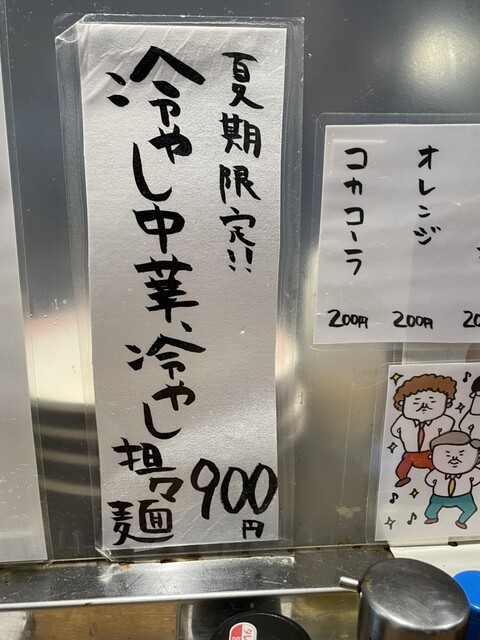 夏期限定!!
冷やし中華、冷やし
担々麺
900円
オレンジ
200円
コカコーラ
200円